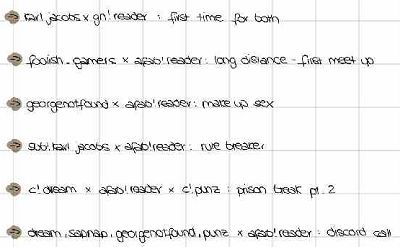 karl jacobs x gn!reader : first time for both
foolish_gamers x afab!reader : long distance - first meet up
georgenotfound x afab!reader : make up sex
sub!karl jacobs x afab!reader : rule breaker
c!dream x afab!reader x c!punz : prison break pt. 2
dream, sapnap, georgenotfound, punz x afab!reader : discord call